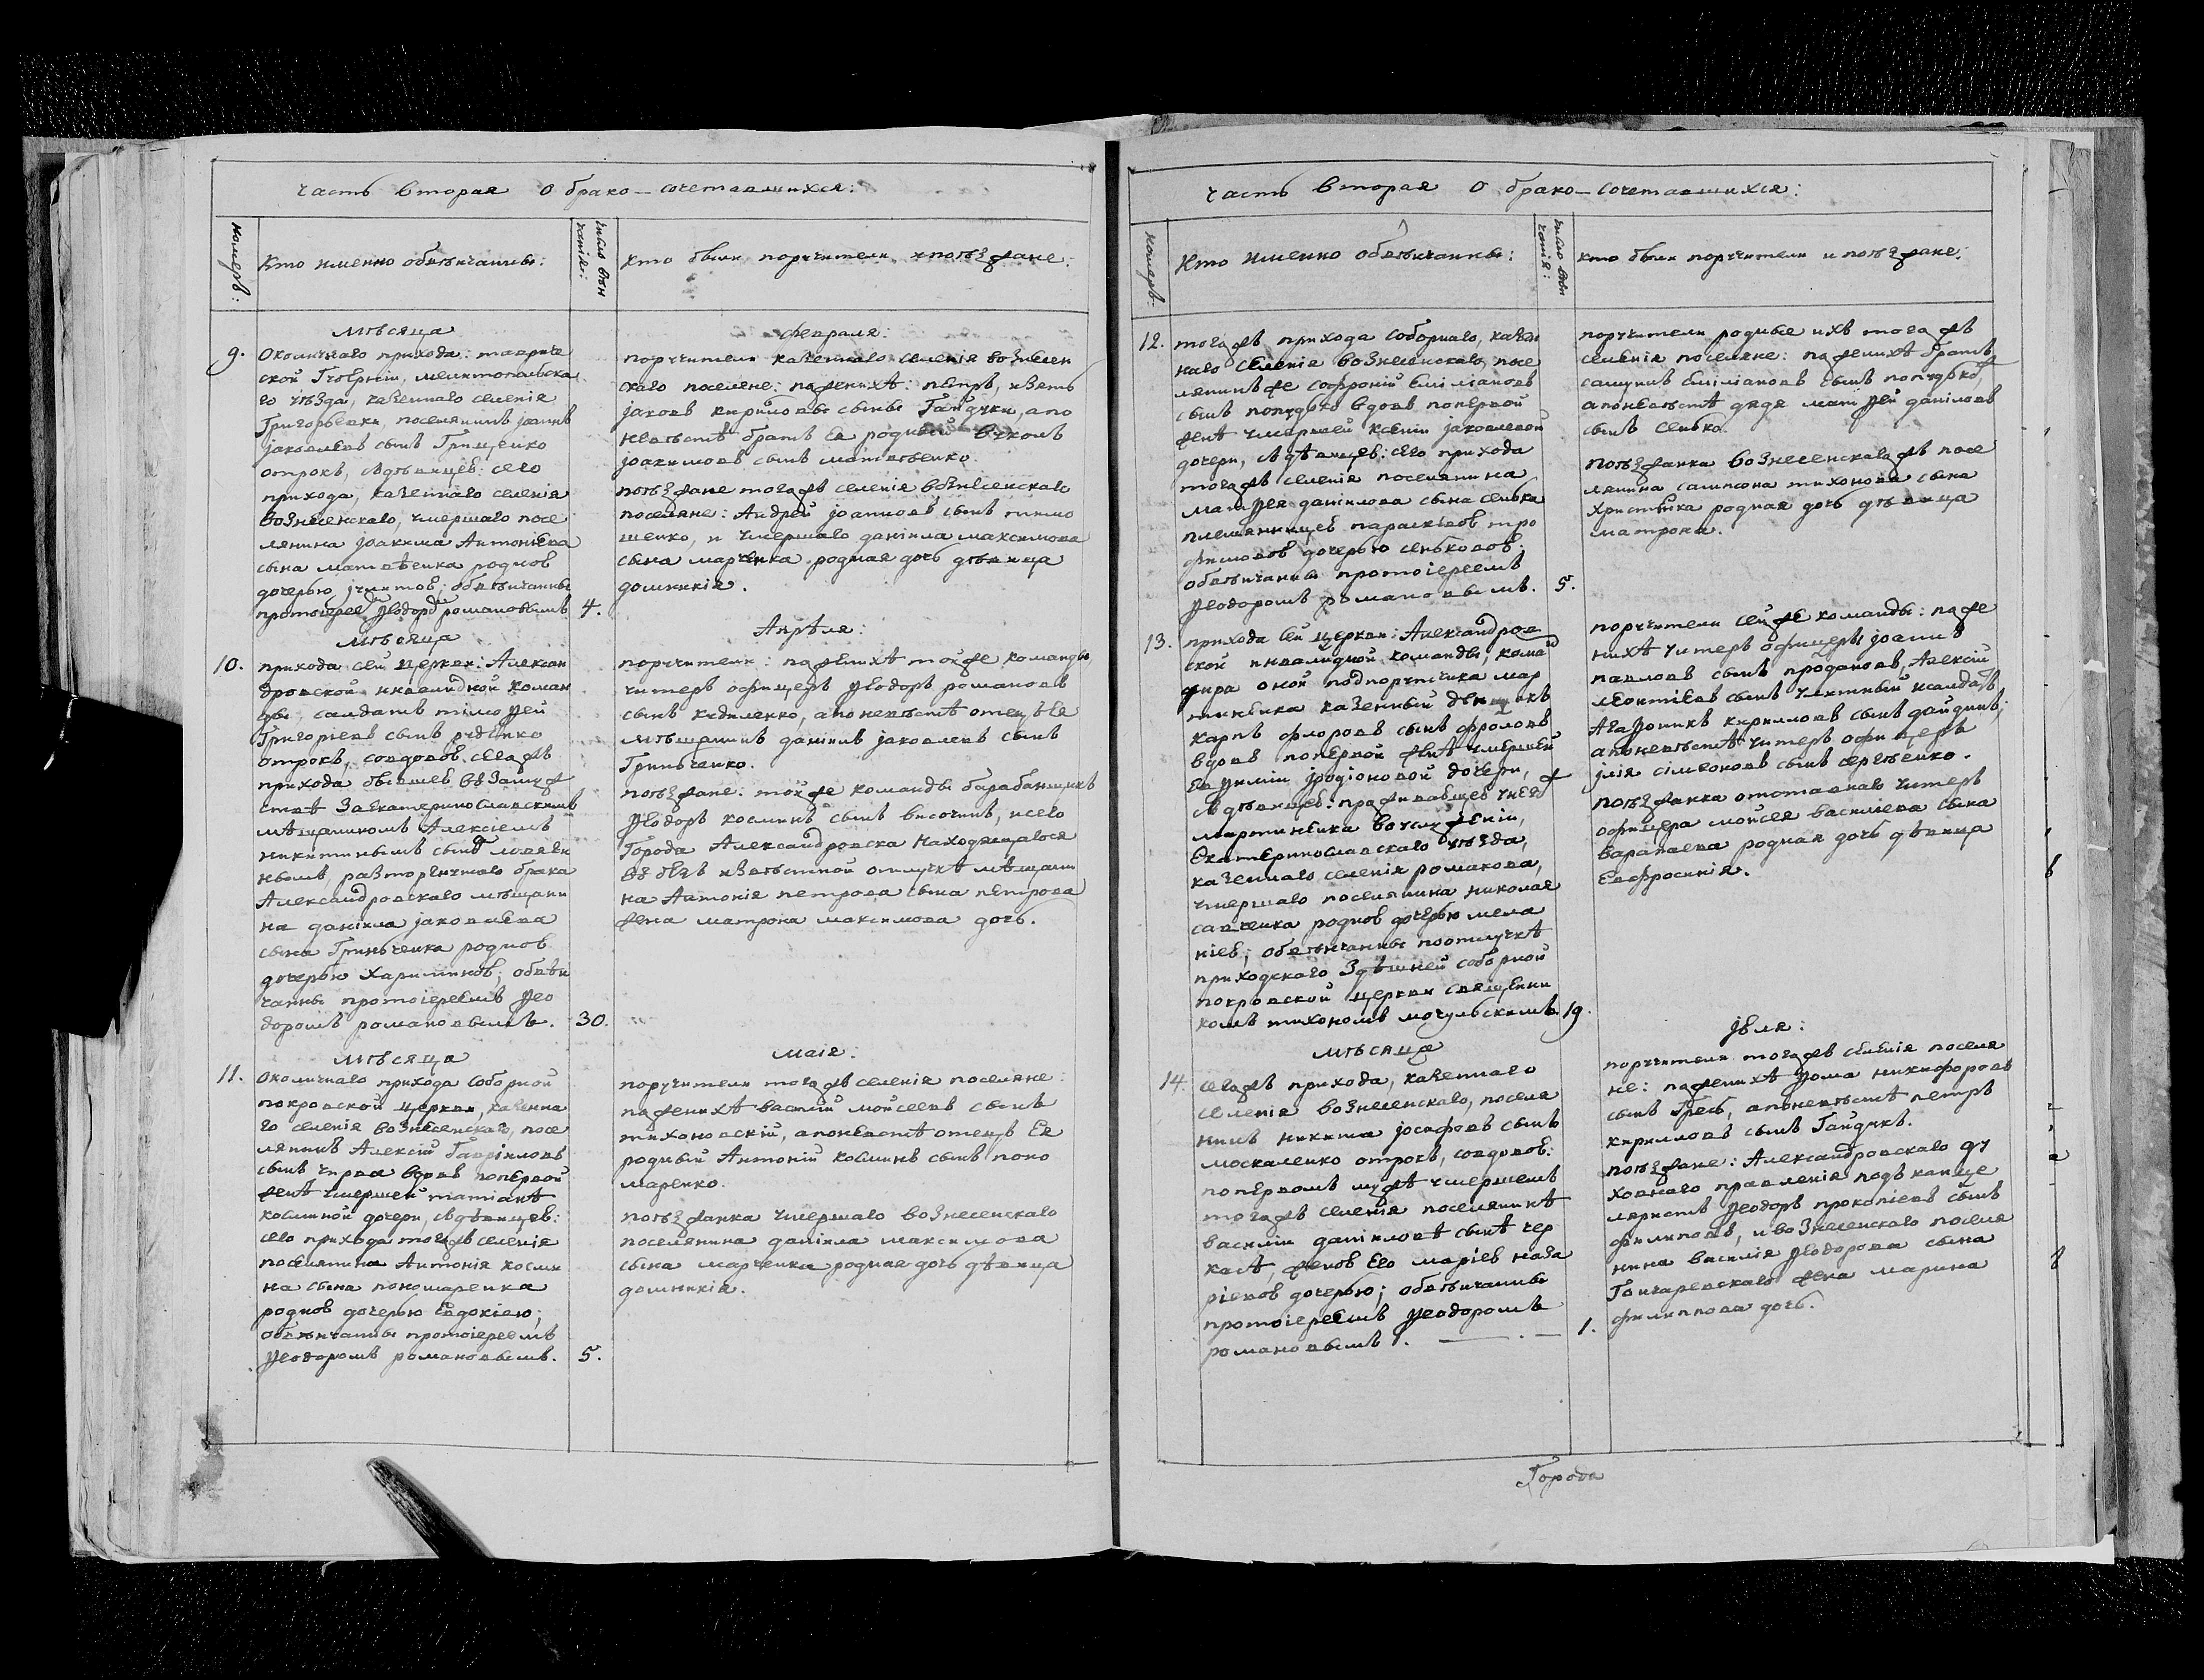 Часть вторая о брако-сочетавшихся:
номеръ:
Кто именно обвѣнчанны:
число вѣн
чанія:
Кто были поручители и поѣзжане:
мѣсяца
февраля:
9.
Околичнаго прихода: тавриче
ской Губерніи, мелитопольска
го уѣзда, казеннаго селенія
Григорьевки, поселянинъ іоаннъ
іаковлевъ сынъ Гриценко
отрокъ, съ дѣвицею: сего
прихода, казеннаго селенія
вознесенскаго, умершаго посе
лянина іоакима Антоніева
сына матвѣенка родною
дочерью; обвѣнчанны
протоіереем Ѳеодором романовымъ
4.
поручители казеннаго селенія вознесен
скаго поселяне: по женихѣ: петръ, и зять
іаковъ кириловы сыны Гайдуки, а по
невѣстѣ братъ Ея родный
іоакимовъ сынъ матвѣенко.
поѣзжане тогожъ селенія вознесенскаго
поселяне: Андрей іоанновъ сынъ тимо
шенко, и умершаго даніила максимова
сына марченка родная дочь дѣвица
домникія.
мѣсяца
Апрѣля:
10.
прихода сей церкви: Алексан
дровской инвалидной коман
ды, салдатъ тимоѳей
Григоріевъ сынъ руденко
отрокъ, со вдовою: сегожъ
прихода бывшею въ замуж
ствѣ за Екатеринославскимъ
мѣщаниномъ Алексіемъ
никитинымъ сыномъ
расторгнутаго брака
Александровскаго мѣщани
на даніила іаковлева
сына Гринченка родною
дочерью Харитиною; обвѣн
чанны протоіереемъ Ѳео
доромъ романовымъ.
30.
поручители: по женихѣ той же команды,
унтеръ офицеръ Ѳеодоръ романовъ
сынъ кидиленко, а по невѣстѣ отецъ Ея
мѣщанинъ даніилъ іаковлевъ сынъ
Гринченко.
поѣзжане: той же команды барабанщикъ
Ѳеодоръ косминъ сынъ височинъ, и сего
Города Александровска находящагося
въ безъизвѣстной отлучкѣ мѣщани
на Антонія петрова сына петрова
жена матрона максимова дочь.
мѣсяца
маія:
11.
Околичнаго прихода Соборной
покровской церкви, казенна
го селенія вознесенскаго, посе
лянинъ Алексій Гавріиловъ
сынъ чирва вдовъ по первой
женѣ умершей татіанѣ
косминой дочери, съ дѣвицею:
сего прихода тогожъ селенія
поселянина Антонія косми
на сына пономаренка
родною дочерью Евдокіею;
обвѣнчанны протоіереемъ
Ѳеодоромъ романовымъ.
5.
поручители тогожъ селенія поселяне:
по женихѣ василій мойсеевъ сынъ
тихоновскій, а по невѣстѣ отецъ Ея
родный Антоній косминъ сынъ поно
маренко.
поѣзжанка умершаго вознесенскаго
поселянина даніила максимова
сына марченка родная дочь дѣвица
домникія.
Часть вторая о брако-сочетавшихся:
номеръ:
Кто именно обвѣнчанны:
число вѣн
чанія:
Кто были поручители и поѣзжане:
12.
тогожъ прихода соборнаго, казен
наго селенія вознесенскаго, посе
лянинъ же софроній Емиліановъ
сынъ попудько вдовъ по первой
женѣ умершей ксеніи іаковлевой
дочери, съ дѣвицею: сего прихода
тогожъ селенія поселянина
матѳея даніилова сына сенька
племянницею параскевою тро
фимовою дочерью сеньковою;
обвѣнчанны протоіереемъ
Ѳеодоромъ романовымъ.
5.
поручители родные ихъ тогожъ
селенія поселяне: по женихѣ братъ
самуилъ Емиліановъ сынъ попудько,
а по невѣстѣ дядя матѳей даніиловъ
сынъ сенько.
поѣзжанка вознесенскагожъ посе
лянина сампсона тихонова сына
родная дочь дѣвица
матрона.
13.
прихода сей церкви: Александров
ской инвалидной команды, коман
дира оной подпоручика мар
тиненка казенный денщикъ
карпъ флоровъ сынъ фроловъ
вдовъ по первой женѣ умершей
Евѳиміи іродіоновой дочери,
съ дѣвицею: проживавшею у него ж
мартиненка во услуженіи,
Екатеринославскаго уѣзда,
казеннаго селенія романкова,
умершаго поселянина николая
савченка родною дочерью мела
ніею; обвѣнчанны по отлучкѣ
приходскаго здѣшней соборной
покровской церкви священни
комъ тихономъ мочульскимъ.
19.
поручители сей же команды: по же
нихѣ унтеръ офицеръ іоаннъ
павловъ сынъ продановъ, Алексій
леонтіевъ сынъ и салдатъ
Агаѳоникъ кириловъ сынъ
а по невѣстѣ унтеръ офицеръ
илія сімеоновъ сынъ сергѣенко.
поѣзжанка отставнаго унтеръ
офицера мойсея василіева сына
варапаева родная дочь дѣвица
Евфросинія.
мѣсяца
іюля:
14.
сегожъ прихода, казеннаго
селенія вознесенскаго, поселя
нинъ никита іосафовъ сынъ
москаленко отрокъ, со вдовою:
по первомъ мужѣ умершемъ
тогожъ селенія поселянинѣ
василіи даніиловѣ сынѣ чер
касѣ, женою Его маріею наза
ріевою дочерью; обвѣнчанны
протоіереемъ Ѳеодоромъ
романовымъ.
1.
поручители тогожъ селенія поселя
не: по женихѣ Ѳома никифоровъ
сынъ Гресь, а по невѣстѣ петръ
кириловъ сынъ Гайдукъ.
поѣзжане: Александровскаго ду
ховнаго правленія подъканце
ляристъ Ѳеодоръ прокопіевъ сынъ
филиповъ, и вознесенскаго поселя
нина василія Ѳеодорова сына
Гончаревскаго жена марина
филиппова дочь.
Города